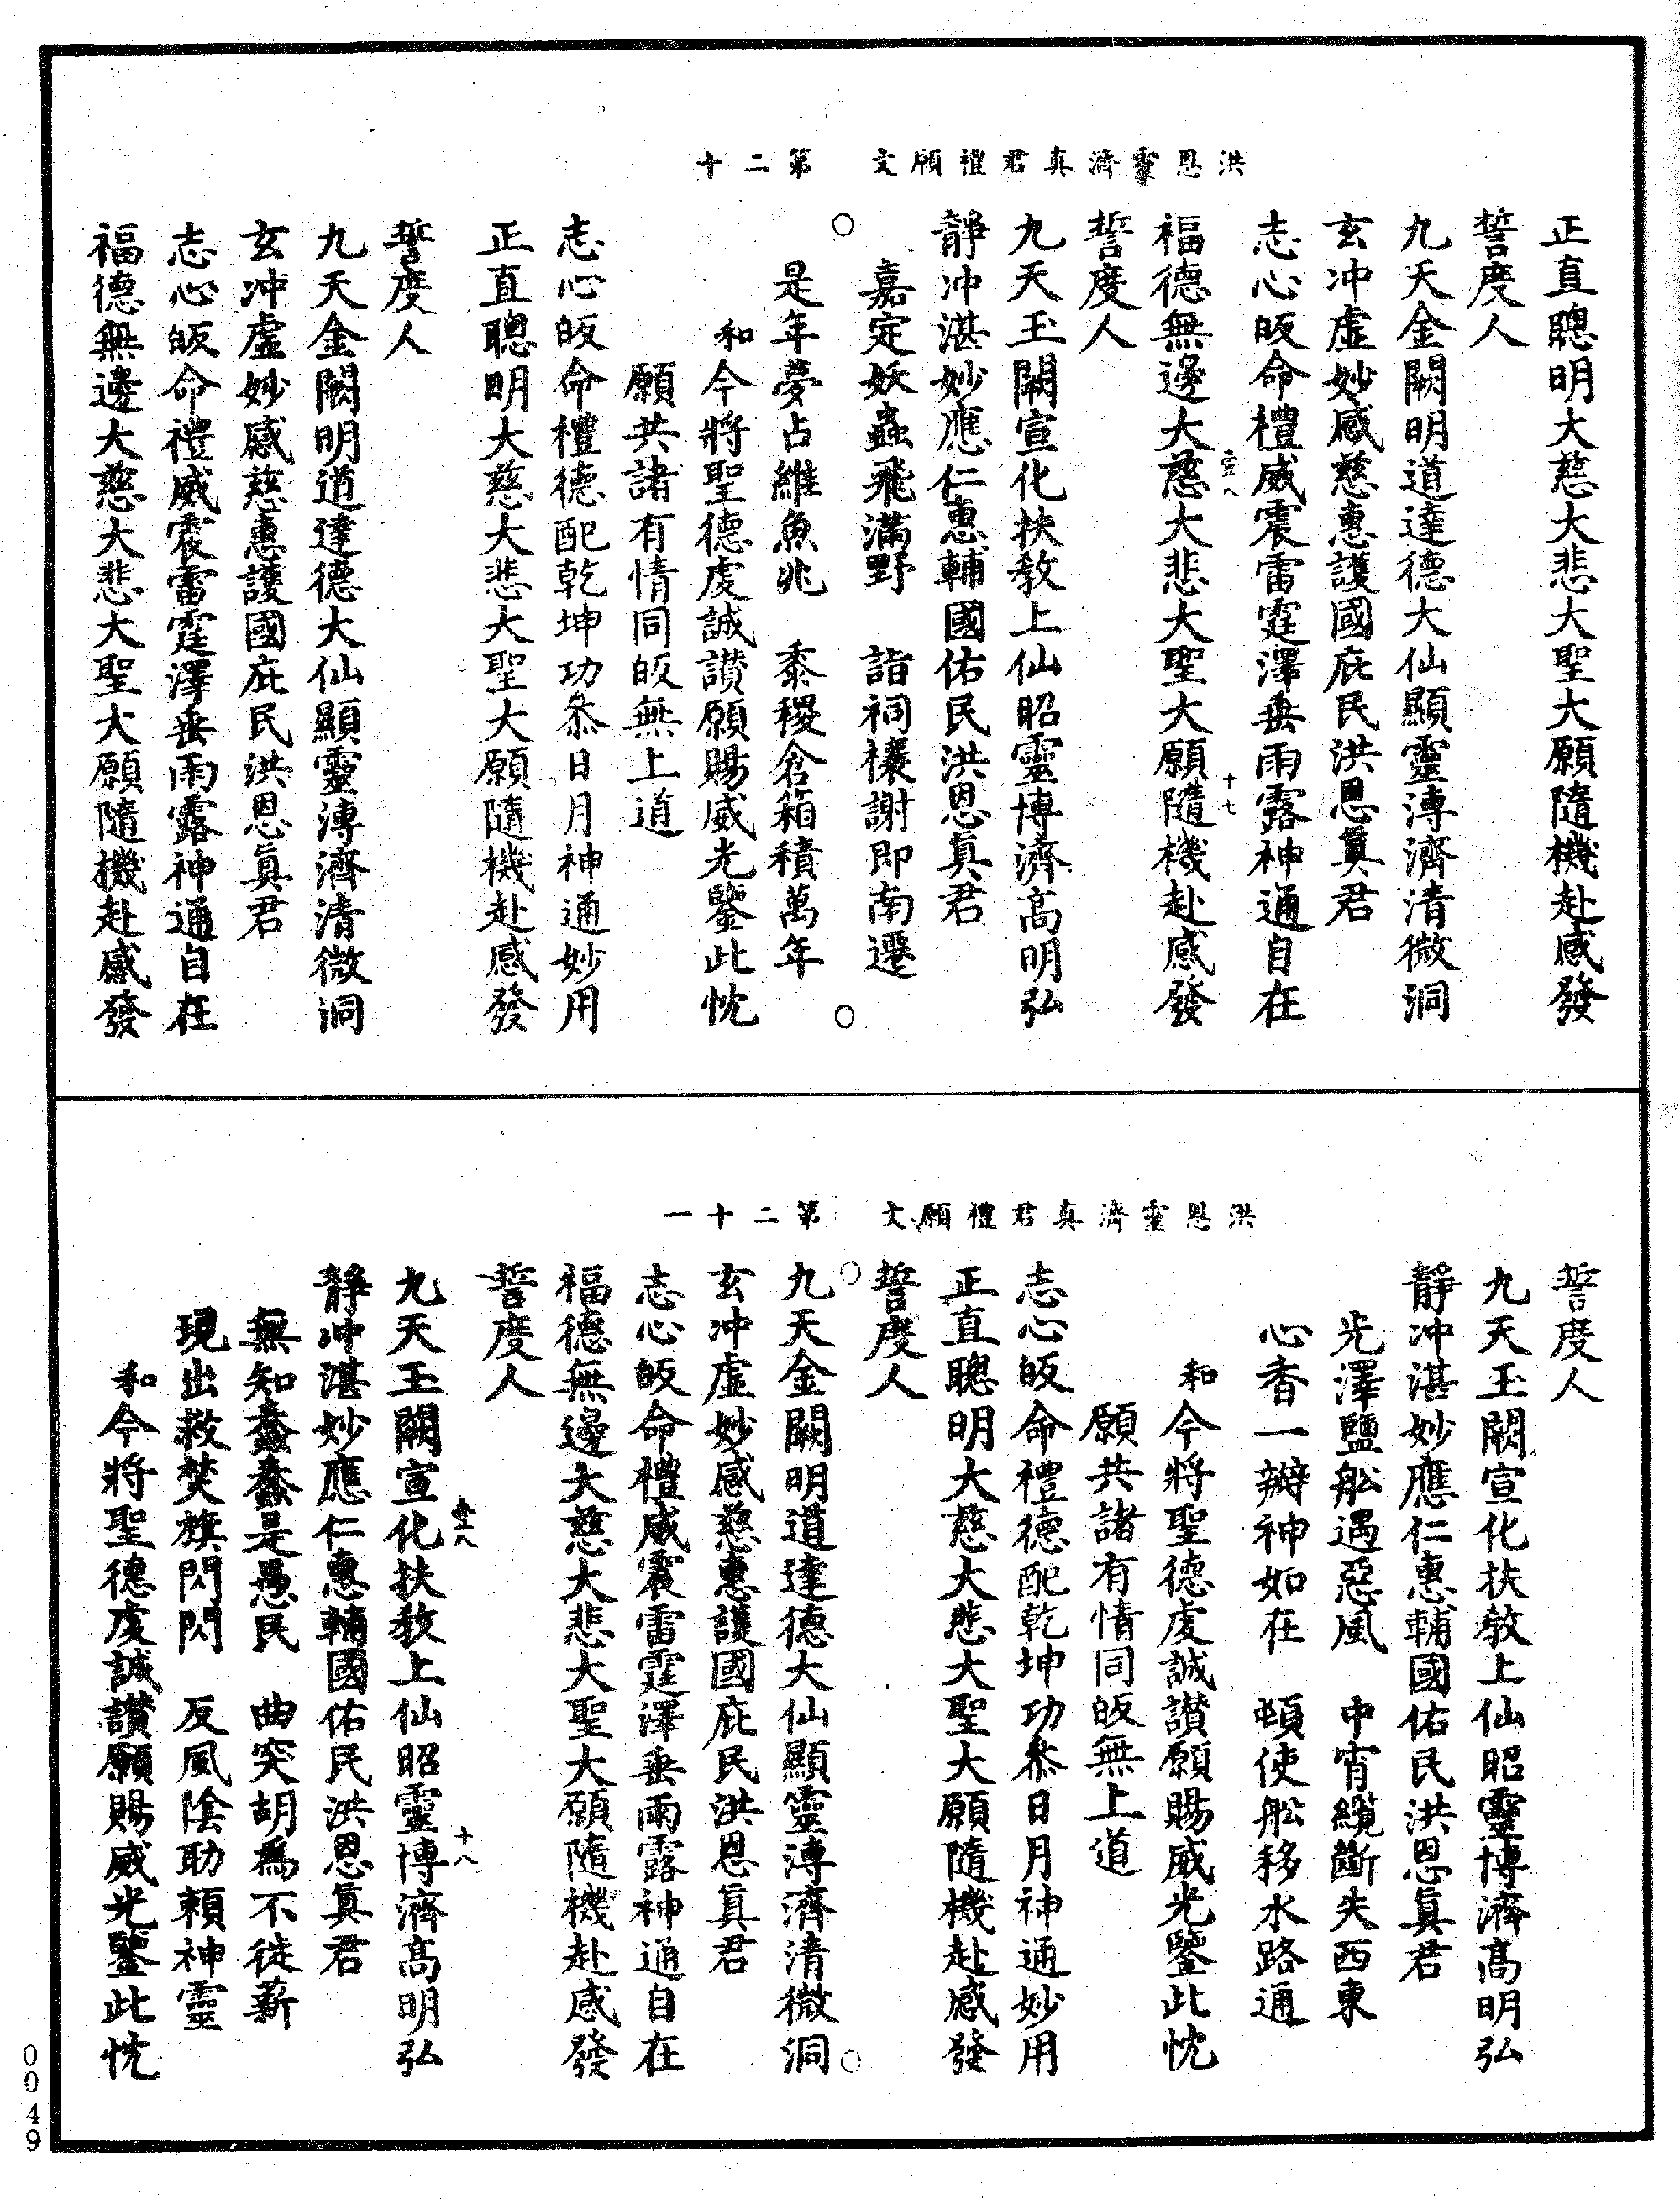 洪恩靈濟真君禮願文　第二十
正直聰明大慈大悲大聖大願隨機赴感發
誓度人
九天金闕明道達德大仙顯靈溥濟清微洞
玄冲虛妙感慈惠護國庇民洪恩真君
志心皈命禮威震雷霆澤垂雨露神通自在
壹八　十七
福德無邊大慈大悲大聖大願隨機赴感發
誓度人
九天玉闕宣化扶教上仙昭靈博濟高明弘
靜冲湛妙應仁惠輔國佑民洪恩真君
嘉定妖蟲飛滿野　詣祠禳謝即南遷
是年夢占維魚兆　黍稷倉箱積萬年
和今將聖德虔誠讚願賜威光鑒此忱
願共諸有情同皈無上道
志心皈命禮德配乾坤功叅日月神通妙用
正直聰明大慈大悲大聖大願隨機赴感發
誓度人
九天金闕明道達德大仙顯靈溥濟清微洞
玄冲虛妙感慈惠護國庇民洪恩真君
志心皈命禮威震雷霆澤垂雨露神通自在
福德無邊大慈大悲大聖大願隨機赴感發
洪恩靈濟真君禮願文　第二十一
誓度人
九天玉闕宣化扶教上仙昭靈博濟高明弘
靜冲湛妙應仁惠輔國佑民洪恩真君
光澤鹽舩遇惡風　中宵纜斷失西東
心香一瓣神如在　頓使舩移水路通
和今將聖德虔誠讚願賜威光鑒此忱
願共諸有情同皈無上道
志心皈命禮德配乾坤功叅日月神通妙用
正直聰明大慈大悲大聖大願隨機赴感發
誓度人
九天金闕明道達德大仙顯靈溥濟清微洞
玄冲虛妙感慈惠護國庇民洪恩真君
志心皈命禮威震雷霆澤垂雨露神通自在
福德無邊大慈大悲大聖大願隨機赴感發
誓度人
壹八　十八
九天玉闕宣化扶教上仙昭靈博濟高明弘
靜冲湛妙應仁惠輔國佑民洪恩真君
無知蠢蠢是愚民　曲突胡為不徙薪
現出救焚旗閃閃　反風陰助賴神靈
和今將聖德虔誠讚願賜威光鑒此忱
0049